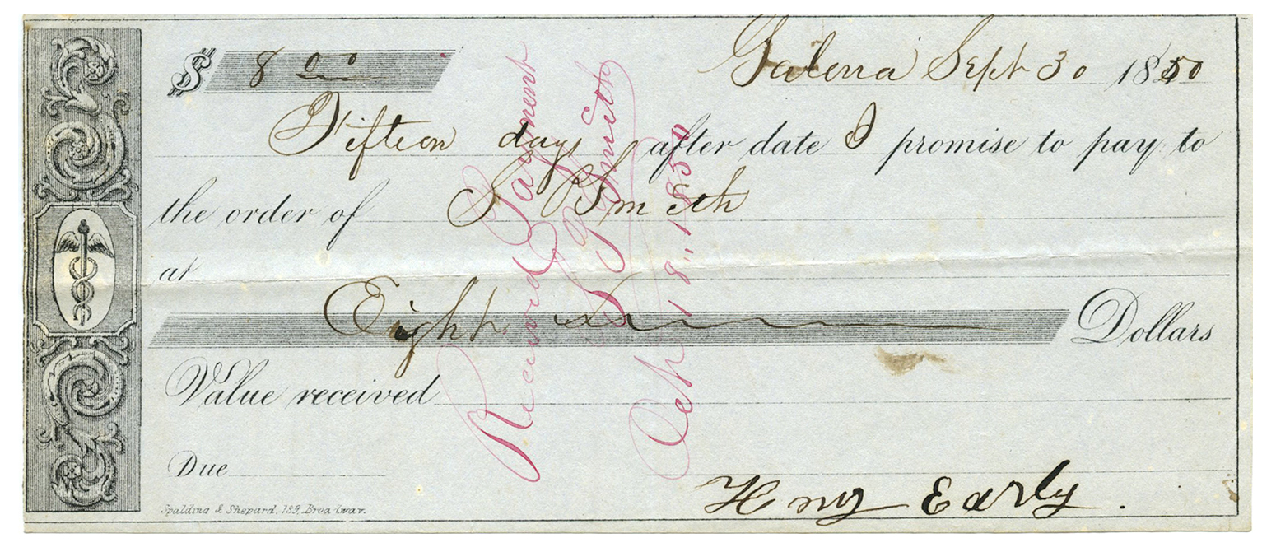 $ 8 00 Galena Sept 30 1850
Fifteen days after date I promise to pay to
the order of S Smith
at
Eight Dollars
Value received
Due
Henry Early.
Spalding & Shepard, 189, Broadway.
Received Payment
S Smith
Oct 18,, 1850